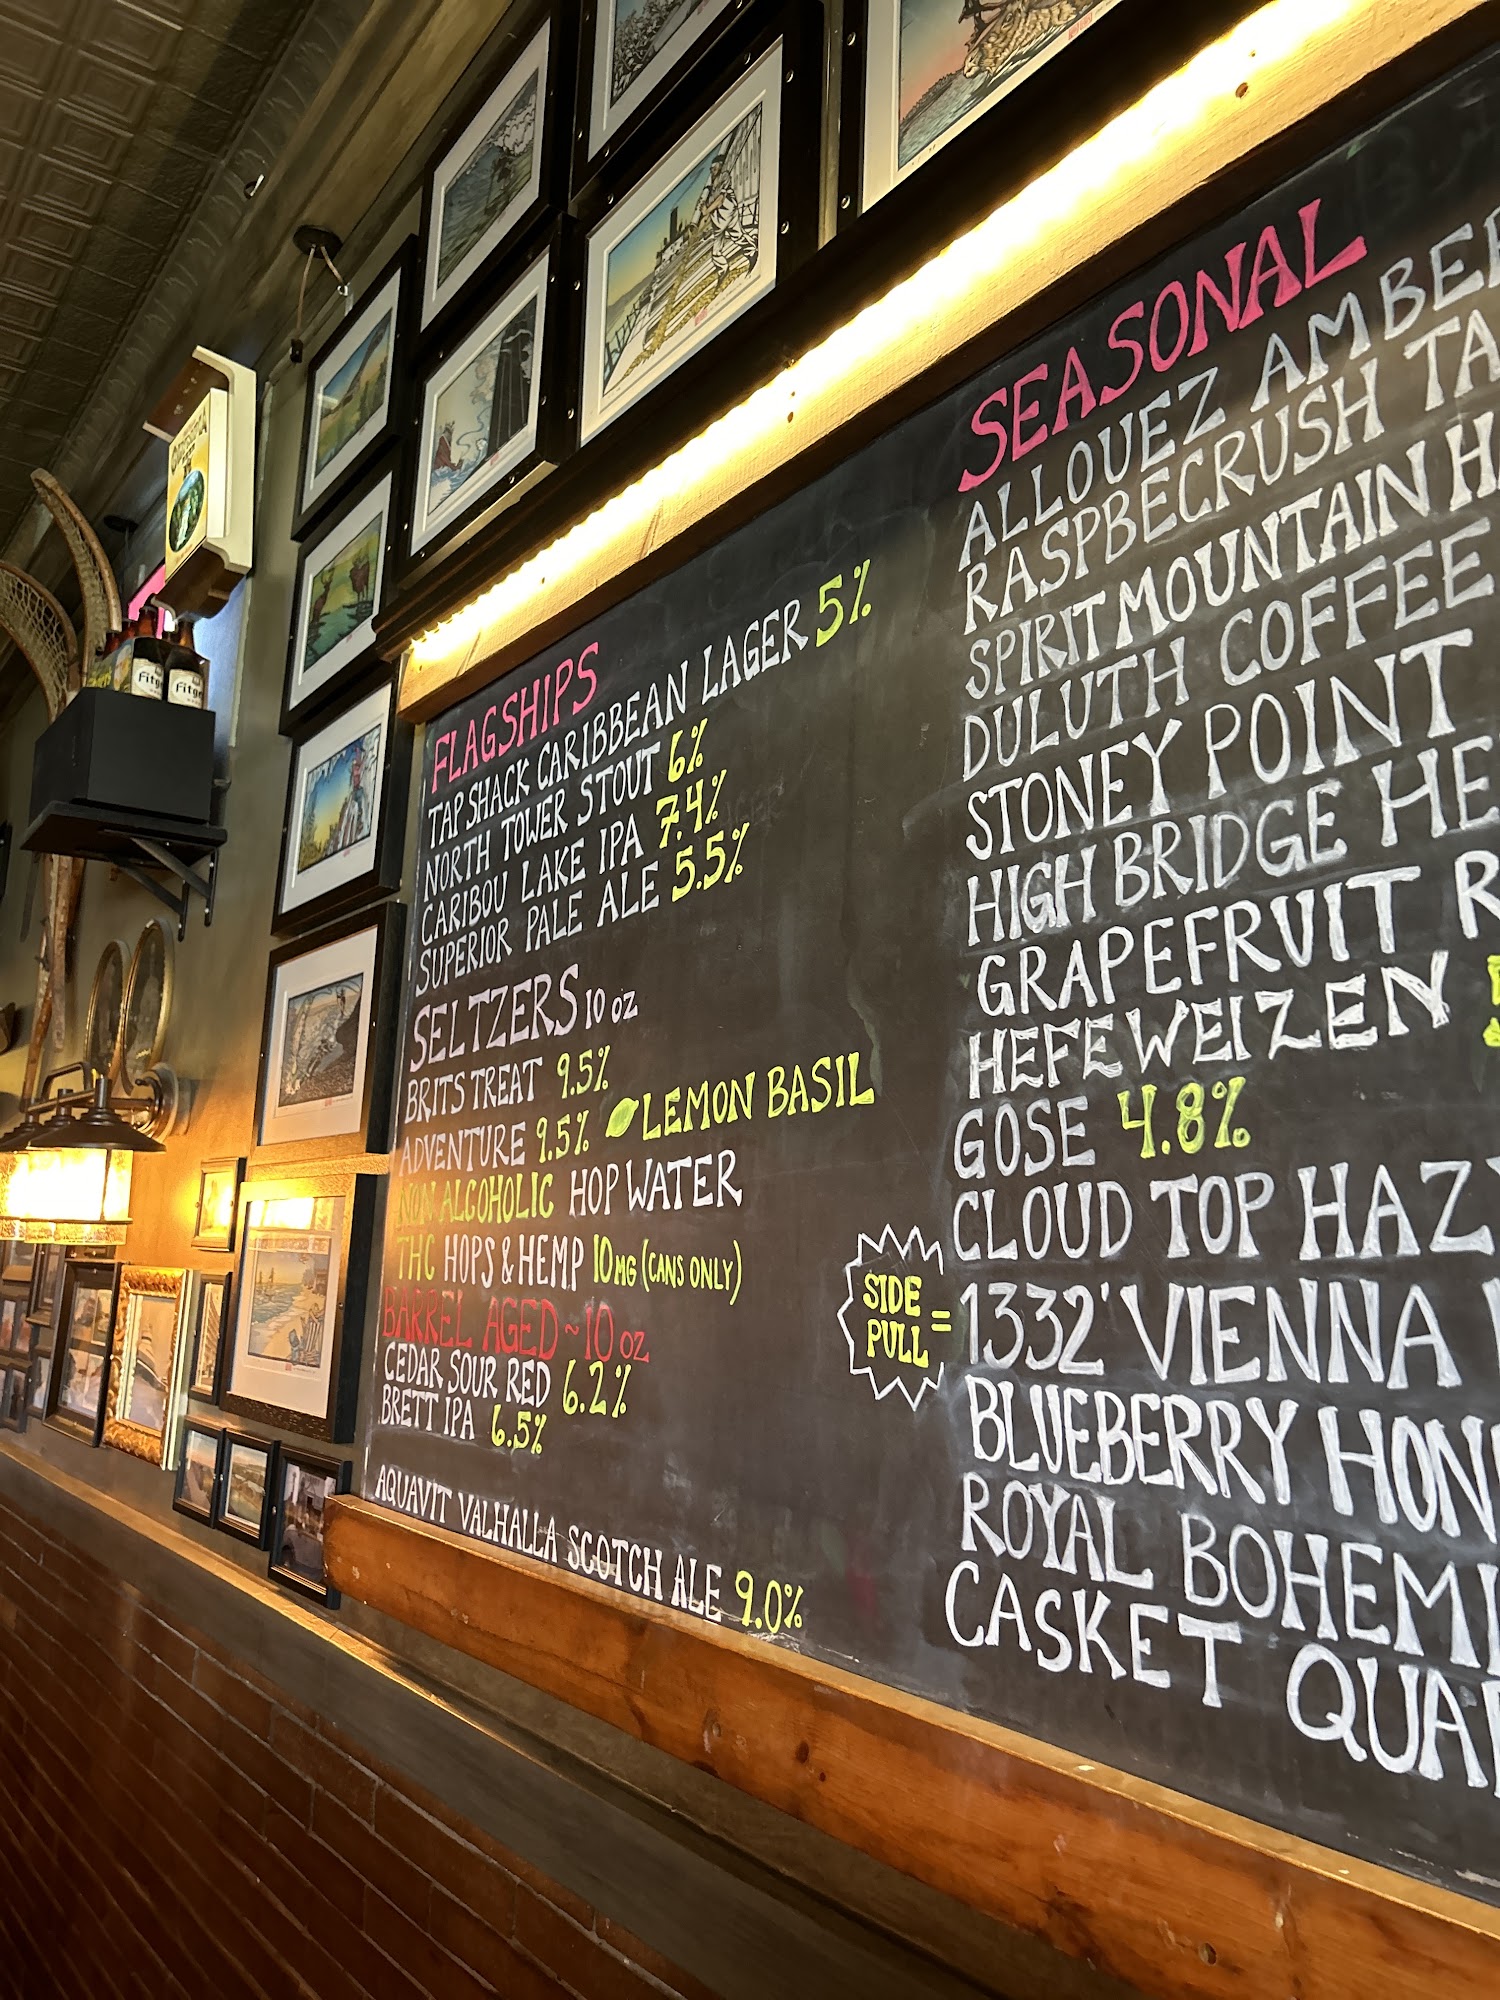 FLAGSHIPS
TAP SHACK CARIBBEAN LAGER 5%
NORTH TOWER STOUT 6%
CARIBOU LAKE IPA 7.4%
SUPERIOR PALE ALE 5.5%
SELTZERS 10 OZ
BRITS TREAT 9.5%
ADVENTURE 9.5% LEMON BASIL
NON ALCOHOLIC HOP WATER
THC HOPS & HEMP 10MG (CANS ONLY)
BARREL AGED ~ 10 OZ
CEDAR SOUR RED 6.2%
BRETT IPA 6.5%
AQUAVIT VALHALLA SCOTCH ALE 9.0%
SEASONAL
ALLOUEZ AMBER
RASPBECRUSH TA
SPIRIT MOUNTAIN H
DULUTH COFFEE
STONEY POINT
HIGH BRIDGE HE
GRAPEFRUIT R
HEFEWEIZEN 5
GOSE 4.8%
CLOUD TOP HAZY
SIDE PULL =
1332' VIENNA
BLUEBERRY HON
ROYAL BOHEMI
CASKET QUA